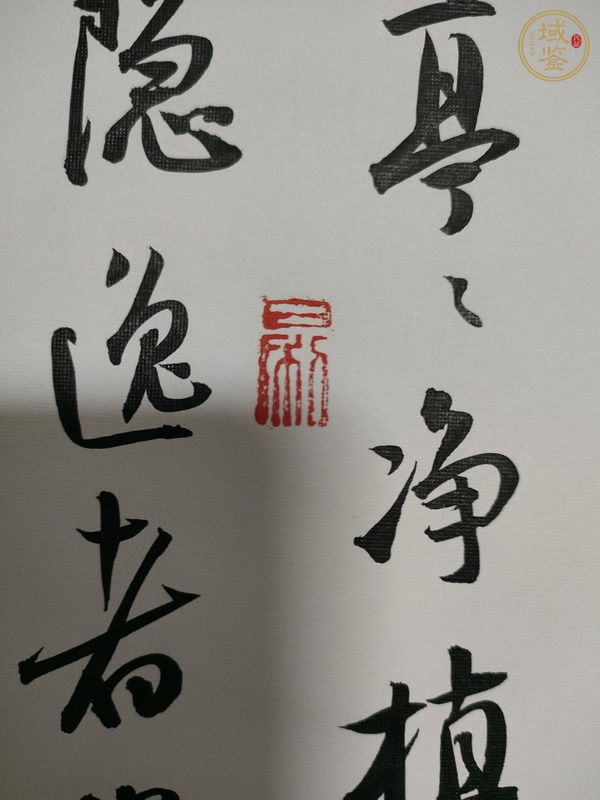 亭〻净植
隐逸者
域鉴